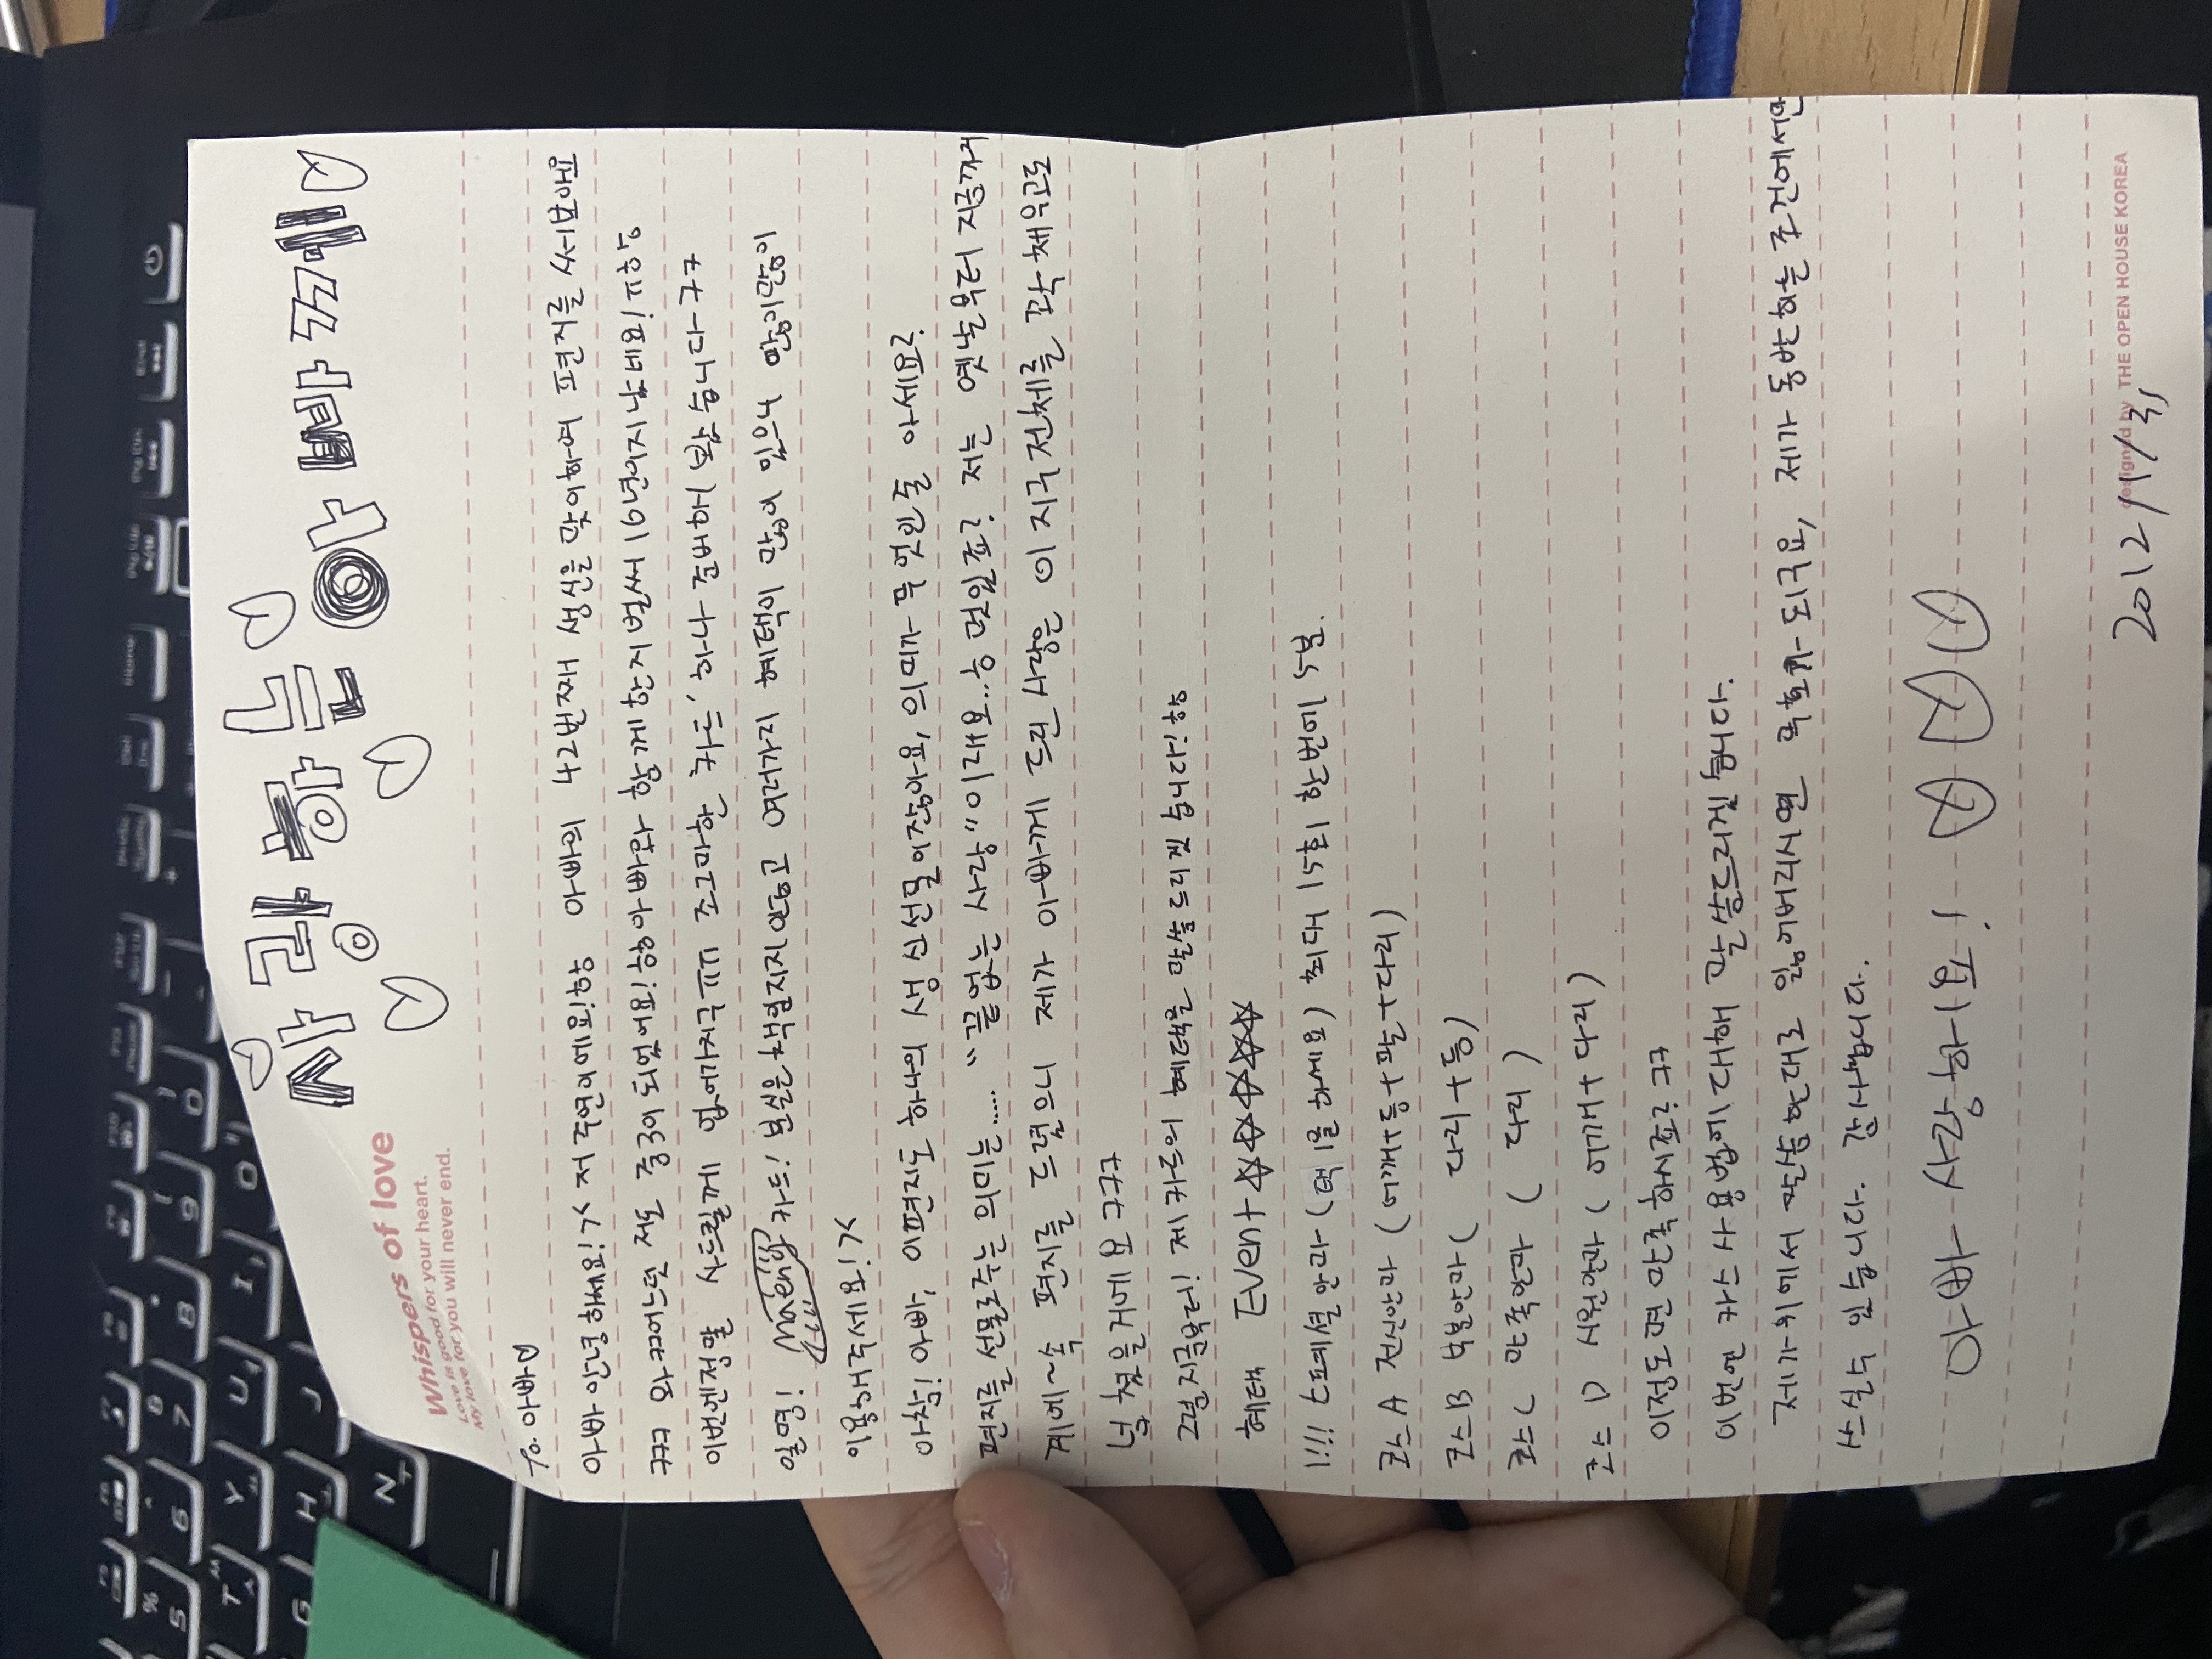 사랑하는 아빠께
Whispers of love
Love is good for your heart.
My love for you will never end.
To. 아빠♡
아빠 안녕하세요! >< 저 주연이에요! 핳 아빠의 42번째 생신을 맞이하여 편지를 써보아요
ㅋㅋㅋ 와ㅋㅋ어느덧 저도 중3이 되었어요! 핳 아빠와 함께한지 벌써 16년이지났네요! ㅠ핳
이번엔정말 사드릴께 없어가지구ㅠㅠ 조그마한 '카드' 하나 준비해 봤습니다ㅋㅋ
일명! Maeng 카드! 분실은 책임지지 않고 여러가지 혜택이 많이 있으니 많이많이
이용해주세요! ><
아참! 아빠, 이편지도 하나의 생신선물이잖아요, 의미가 무엇인줄 아세요?
편지를 선물로주는 의미는..... "끝없는 사랑"이래요..ㅎ 멋있죠? 저는 옛날부터 지금까지
계에~속 편지를 드렸으니 제가 아빠께 드린 사랑은 이 지구전체를 꽉 채우고도
넘쳤을거에요 ㅋㅋㅋ
그럼지금부터! 제 카드의 혜택을 말씀드리겠습니다! 핳
혜택 Event ☆☆☆☆☆
1!!! 스페셜안마 (택 1을 하세요) 최대 15회 한번에 5분.
코스 A 전신안마 (어깨+등+팔+다리)
코스 B 부분안마 ( 다리+등)
코스 C 만족안마 ( 다리 )
코스 D 시원안마 ( 어깨+다리 )
이정도면 만족하시죠? ㅋㅋ
이번엔 카스사용법에대해 말씀드리겠습니다.
제가위에서 말씀한대로 잃어버리시면 무효가 되구요, 제가 동반하는 조건에서만
쓰실수 있습니다. 감사합니다.
아빠 사랑해요! ♡♡♡
designed by THE OPEN HOUSE KOREA
2012/1/31